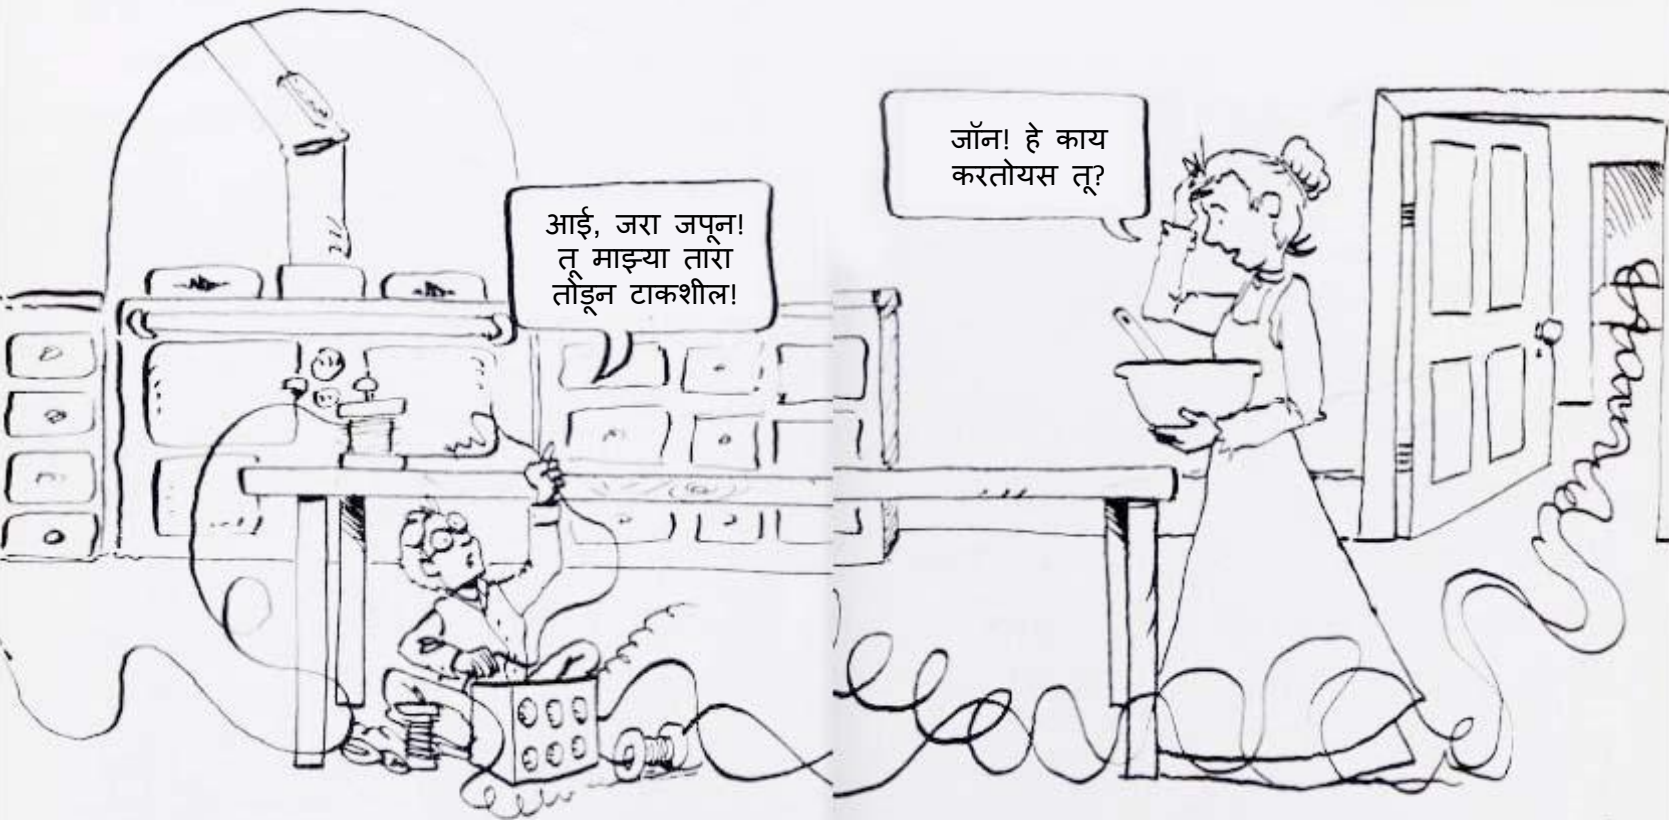 आई, जरा जपून!
तू माझ्या तारा
तोडून टाकशील!
जॉन! हे काय
करतोयस तू?